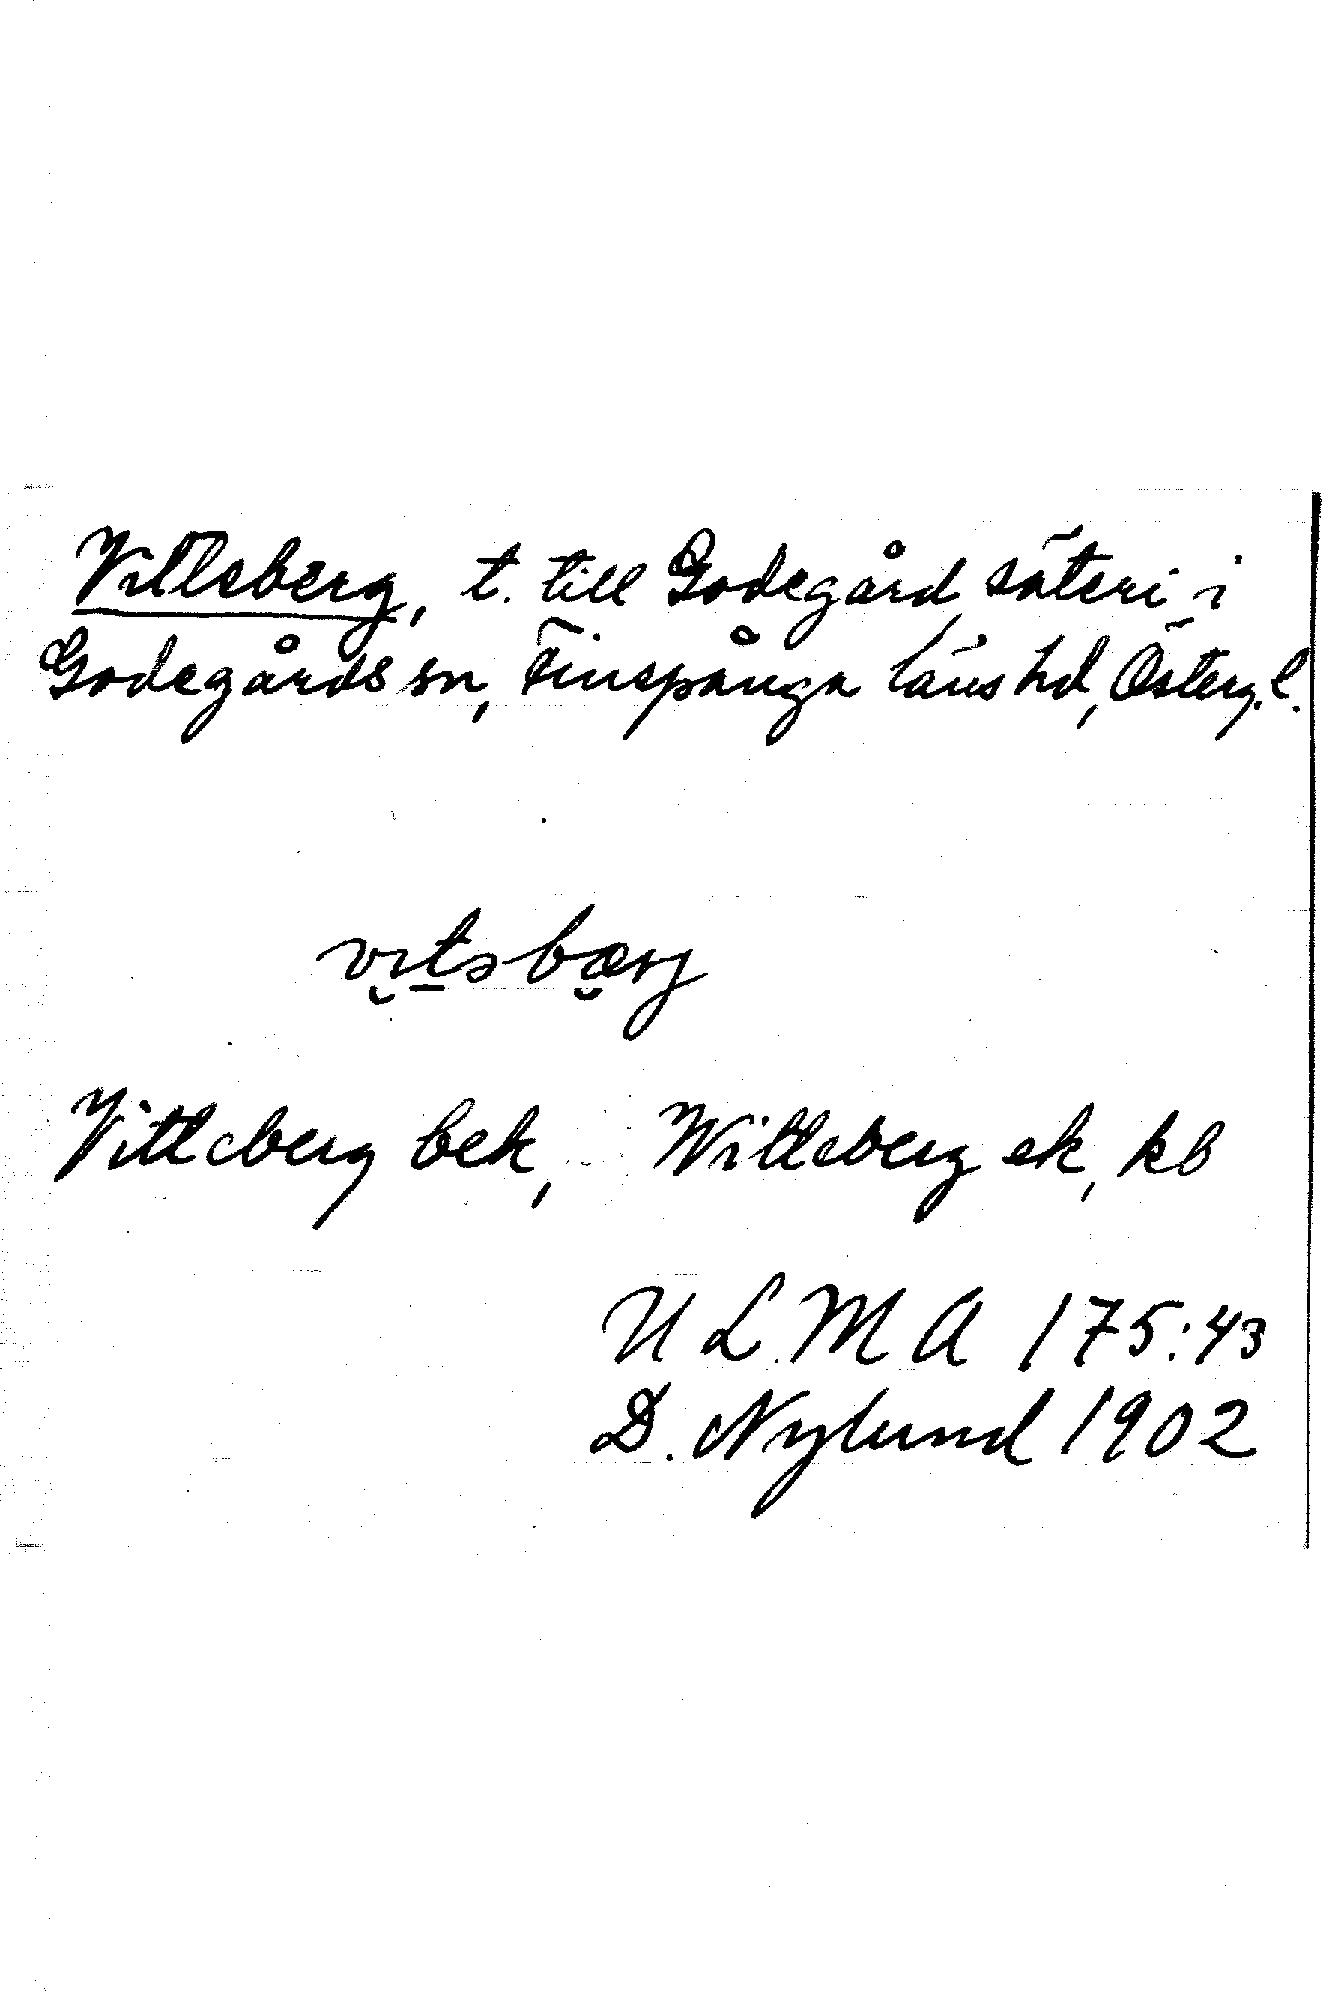 Vitteberg, t. till Godegård säteri i
Godegårds sn, Finspånga läns hd, Österg. l.
Vitteberg bek, Witteberg ek, kb
U L M A 175:43
D. Nylund 1902